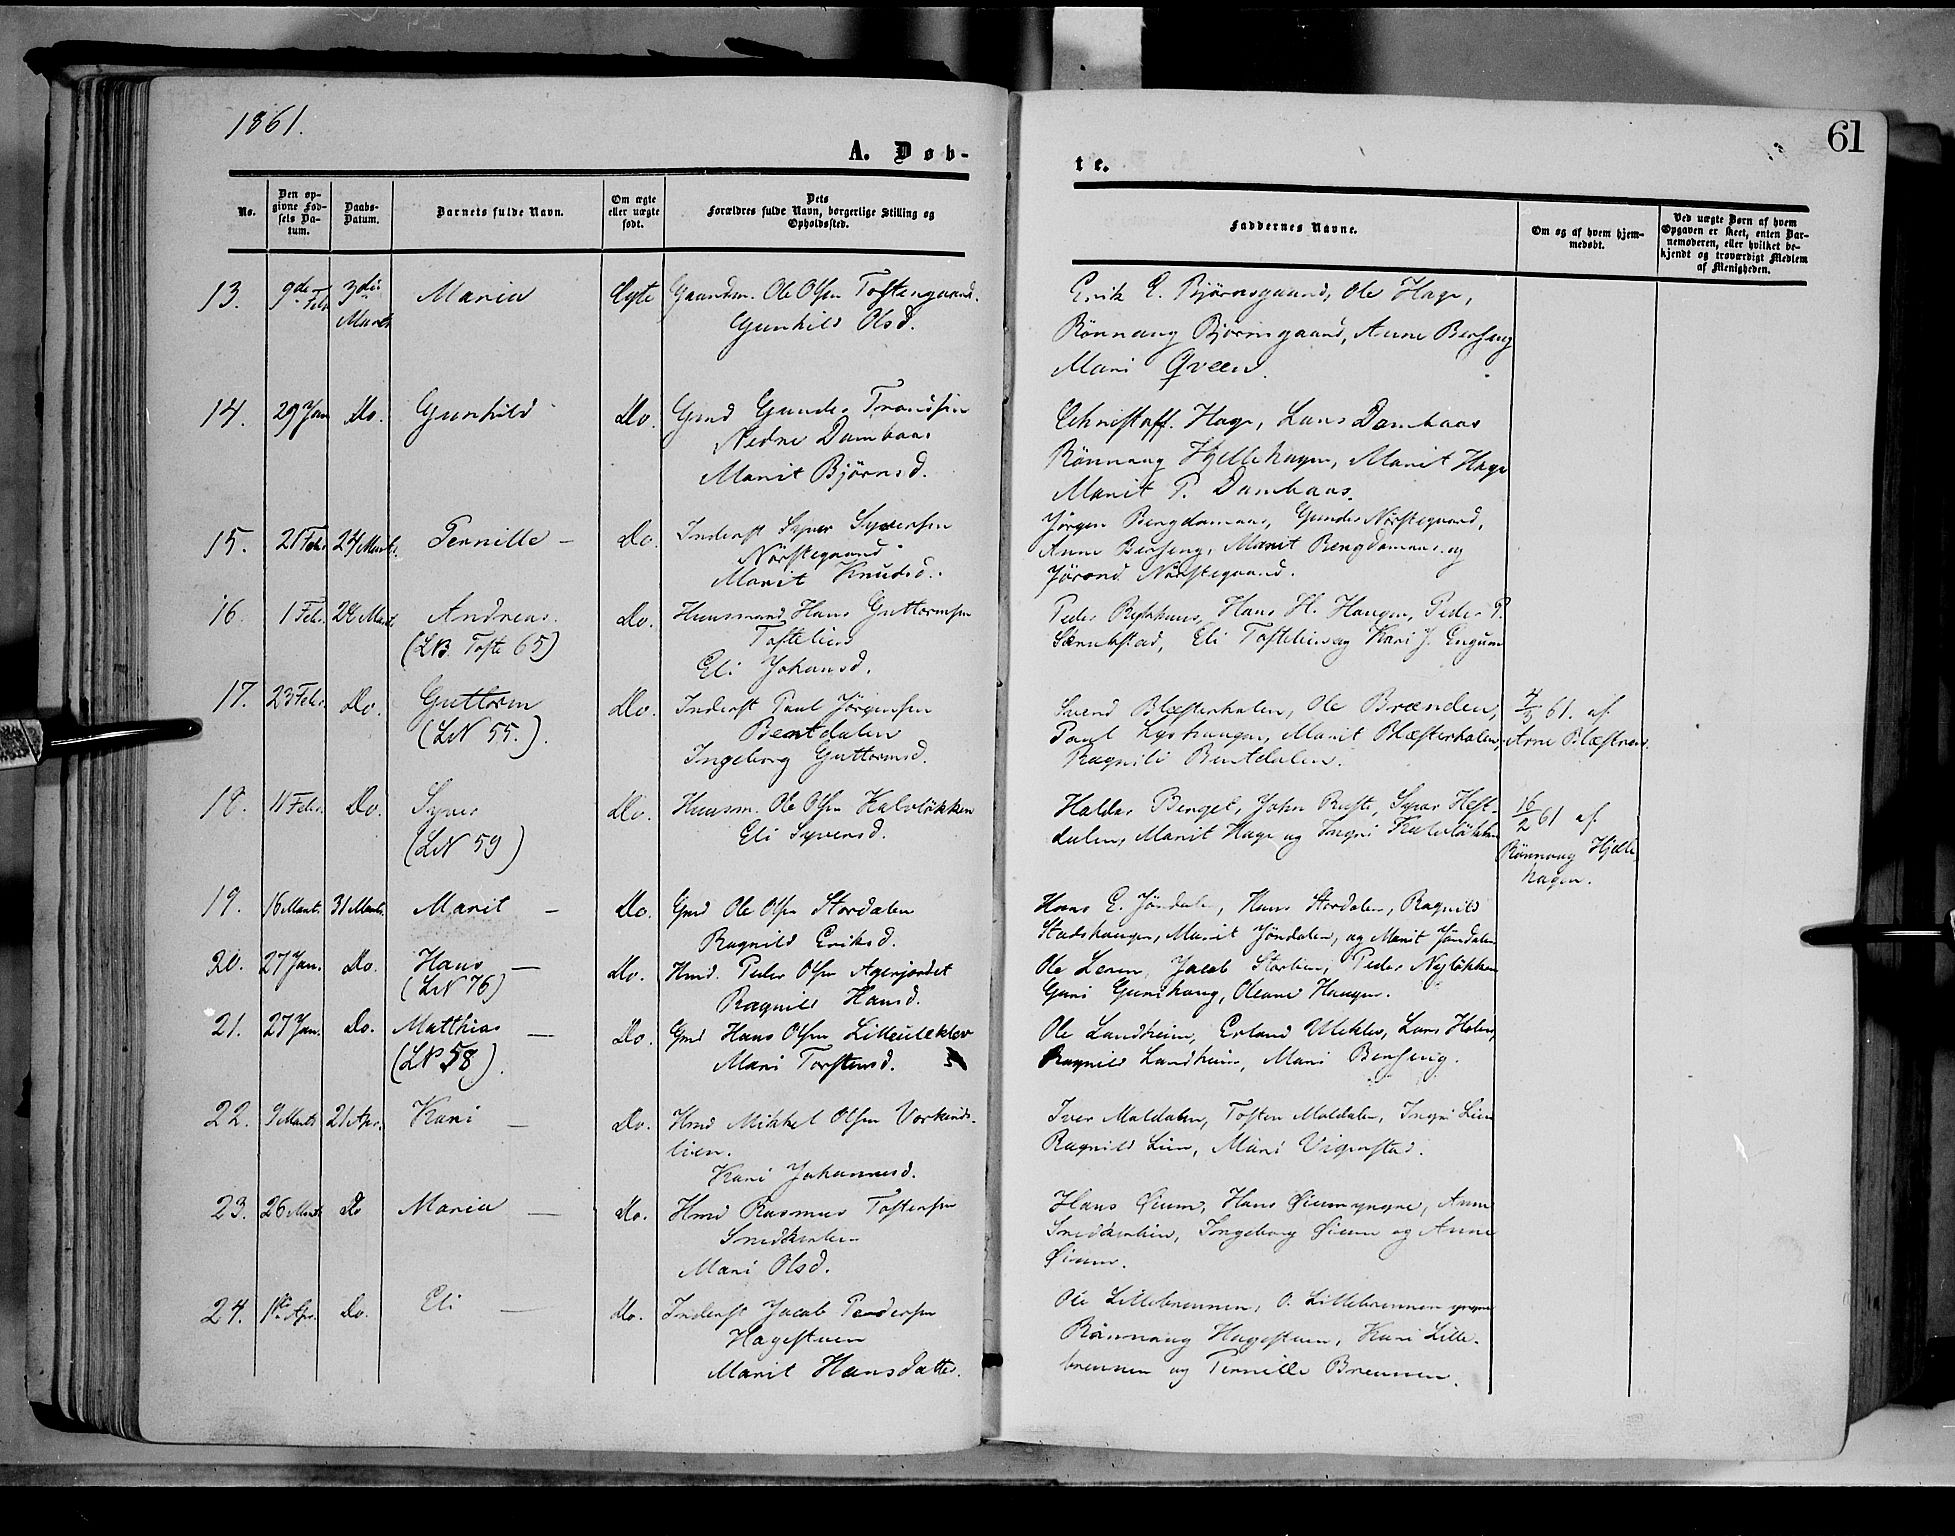 1861.
61
A. Døb-
te.
No.
Den op-
givne Fød-
sels Da-
tum.
Daabs-
Datum.
Barnets fulde Navn.
Om ægte
eller uægte
født.
Dets
Forældres fulde Navn, borgerlige Stilling og
Opholdssted.
Faddernes Navne.
Om og af hvem hjem-
medøbt.
Ved uægte Børn af hvem
Opgaven er skeet, enten Bar-
nemoderen, eller hvilket be-
kjendt og troværdigt Medlem
af Menigheden.
13. 9de Feb 3die Marts Maria Ægte Gaardm. Ole Olsen Toftengaard.
Gunhild Olsd.
Erik E. Bjørnsgaard, Ole Hage,
Rønnaug Bjørnsgaard, Anne Berseng
Mari Qveen.
14. 29 Jan Do. Gunhild Do. Gmd Gunder Trondsen
Nedre Dombaas
Marit Bjørnsd.
Christoff. Hage, Lars Dombaas
Rønnaug Hjellehagen, Marit Hage
Marit P. Dombaas.
15. 21 Febr. 24 Marts. Pernille — Do. Inderst Syver Syversen
Nørstegaard
Marit Knudsd.
Jørgen Bergdømaas, Gunder Nørstegaard,
Anne Berseng, Marit Bergdømaas og
Jørand Nørstegaard.
16. 1 Febr. 24 Marts Andreas. Do. Huusmand Hans Guttormsen
(LN. Tofte 65) Toftelien
Eli Johansd.
Peder Hans H. Haugen, Peder P.
Eli Toftelien og Kari J. Engum
17. 23 Febr. Do. Guttorm Do. Inderst Paul Jørgensen
(LN 55.). Bentdalen
Ingeborg Guttormsd.
Svend Blæsterhalen, Ole Brænden,
Paul Lyshaugen, Marit Blæsterhalen,
Ragnild Bentdalen.
4/3 61. af
Arne Blæstren.
18. 11 Febr. Do. Syver Do. Huusm. Ole Olsen Kalvløkken
(LN 59) Eli Syversd.
Haldor Berget, John Ruste, Syver Hest-
dalen, Marit Hage og Ingri Kalvløkken
16/2 61 af
Rønnaug Hjelle
hagen.
19. 16 Marts. 31 Marts. Marit — Do. Gmd Ole Olsen Stordalen
Ragnild Eriksd.
Hans E. Jøndalen, Hans Stordalen, Ragnild
Stadshaugen, Marit Jøndalen, og Marit Jøndalen
20. 27 Jan. Do. Hans — Do. Hmd. Peder Olsen Agerjordet
(LN 76) Ragnild Hansd.
Ole Leren, Jacob Storlien, Peder Nyløkken
Guri Oleane Haugen.
21. 27 Jan. Do. Matthias — Do. Gmd Hans Olsen Lilleuleklev
(LN 58). Mari Torstensd.
Ole Landheim, Erland Uleklev, Lars Holen,
Ragnild Landheim, Mari Berseng.
22. 9 Marts 21 Apr. Kari — Do. Hmd Mikkel Olsen Vorkinds-
lien.
Kari Johannesd.
Iver Moldalen, Tosten Moldalen, Ingri Lien
Ragnild Lien, Mari Vigerstad.
23. 26 Marts Do Maria — Do. Hmd Rasmus Tostensen
Mari Olsd.
Hans Øium, Hans Øium yngre, Anne
Ingeborg Øium og Anne
Øium.
24. 1ste Apr. Do. Eli — Do. Inderst Jacob Pedersen
Hagestuen
Marit Hansdatter.
Ole Lillebrennen, O. Lillebrennen yngre
Rønnaug Hagestuen, Kari Lille-
brennen og Pernille Brennen.